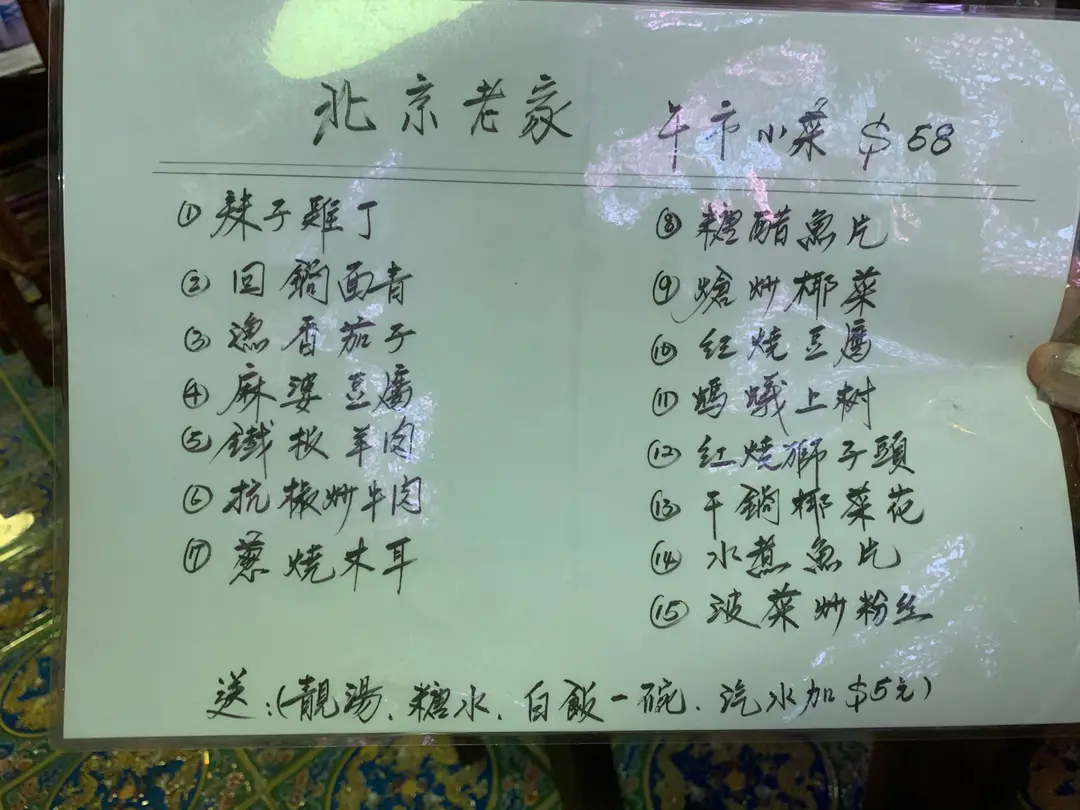 北京老家
午市小菜 $58
① 辣子雞丁
② 回鍋面青
③ 漁香茄子
④ 麻婆豆腐
⑤ 鐵板羊肉
⑥ 抗椒炒牛肉
⑦ 蔥燒木耳
⑧ 糖醋魚片
⑨ 熗炒椰菜
⑩ 紅燒豆腐
⑪ 螞蟻上树
⑫ 紅燒獅子頭
⑬ 干鍋椰菜花
⑭ 水煮魚片
⑮ 波菜炒粉丝
送:(靚湯、糖水、白飯一碗、汽水加$5元)